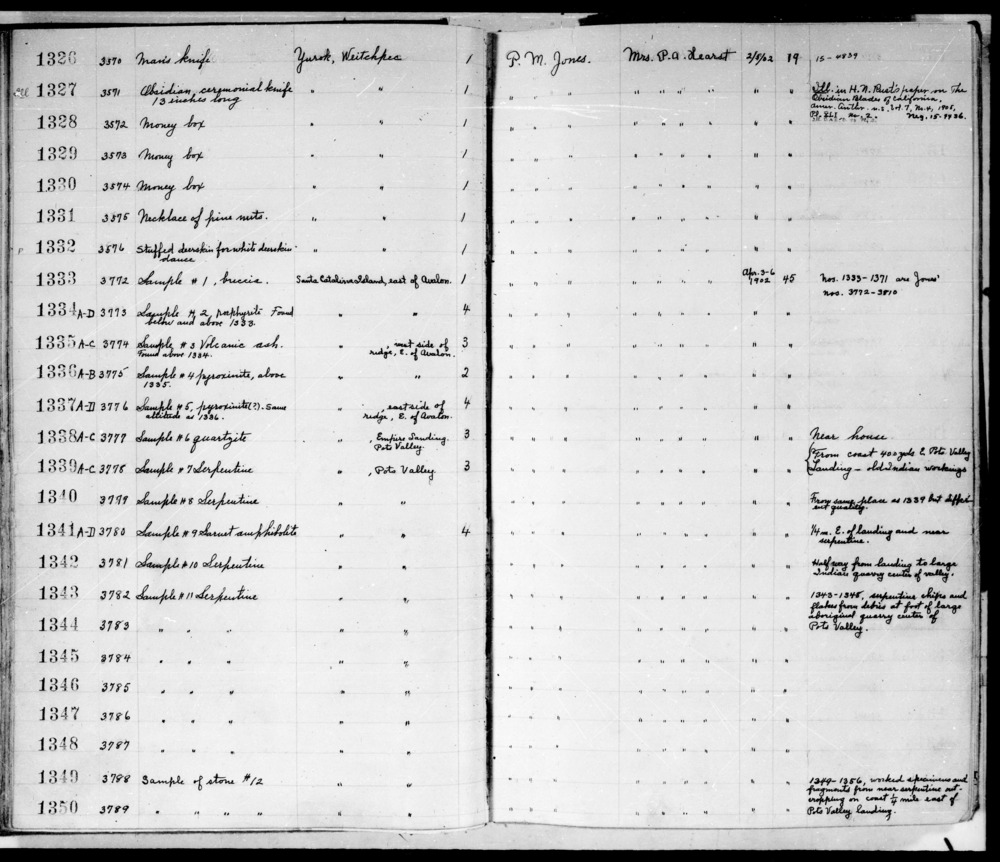 1326 3570 Man's knife Yurok, Weitchpec 1 P. M. Jones. Mrs. P. A. Hearst 2/8/02 19 15-4839
Ill 1327 3571 Obsidian, ceremonial knife " " 1 " " " " " " " " " Ill. in H. N. Rust's paper on The
13 inches long Obsidian Blades of California,
Amer. Anthr. n.s., Vol. 7, No. 4, 1905,
Pl. XLI, no. 2. Neg. 15-9436.
1328 3572 Money box " " 1 " " " " " " " " "
1329 3573 Money box " " 1 " " " " " " " " "
1330 3574 Money box " " 1 " " " " " " " " "
1331 3575 Necklace of pine nuts. " " 1 " " " " " " " " "
1332 3576 Stuffed deerskin for white deerskin " " 1 " " " " " " " " "
dance
1333 3772 Sample #1, breccia. Santa Catalina Island, east of Avalon. 1 " " " " " " " Apr. 3-6 1902 45 Nos. 1333-1371 are Jones'
nos. 3772-3810
1334 A-D 3773 Sample #2, porphyrite Found " " 4 " " " " " " " " "
below and above 1333.
1335 A-C 3774 Sample #3 Volcanic ash. " , west side of 3 " " " " " " " " "
Found above 1334. ridge, E. of Avalon.
1336 A-B 3775 Sample #4 pyroxinite, above " " 2 " " " " " " " " "
1335.
1337 A-D 3776 Sample #5, pyroxinite(?). Same " , east side of 4 " " " " " " " " "
altitude as 1336. ridge, E. of Avalon.
1338 A-C 3777 Sample #6 quartzite " , Empire Landing. 3 " " " " " " " " " Near house.
Pots Valley
1339 A-C 3778 Sample #7 Serpentine " , Pots Valley 3 " " " " " " " " " From coast 400 yds E Pots Valley
Landing - old Indian workings
1340 3779 Sample #8 Serpentine " " " " " " " " " " " From same place as 1339 but differ-
ent quality.
1341 A-D 3780 Sample #9 Garnet amphibolite " " 4 " " " " " " " " " 1/4 m. E. of landing and near
serpentine.
1342 3781 Sample #10 Serpentine " " " " " " " " " " " Half way from landing to large
Indian quarry center of valley.
1343 3782 Sample #11 Serpentine " " " " " " " " " " " 1343-1348, serpentine chips and
flakes from debris at foot of large
aboriginal quarry center of
Pots Valley.
1344 3783 " " " " " " " " " " " " " "
1345 3784 " " " " " " " " " " " " " "
1346 3785 " " " " " " " " " " " " " "
1347 3786 " " " " " " " " " " " " " "
1348 3787 " " " " " " " " " " " " " "
1349 3788 Sample of stone #12 " " " " " " " " " " " 1349-1356, worked specimens and
fragments from near serpentine out-
cropping on coast 1/4 mile east of
Pots Valley landing.
1350 3789 " " " " " " " " " " " " " " "